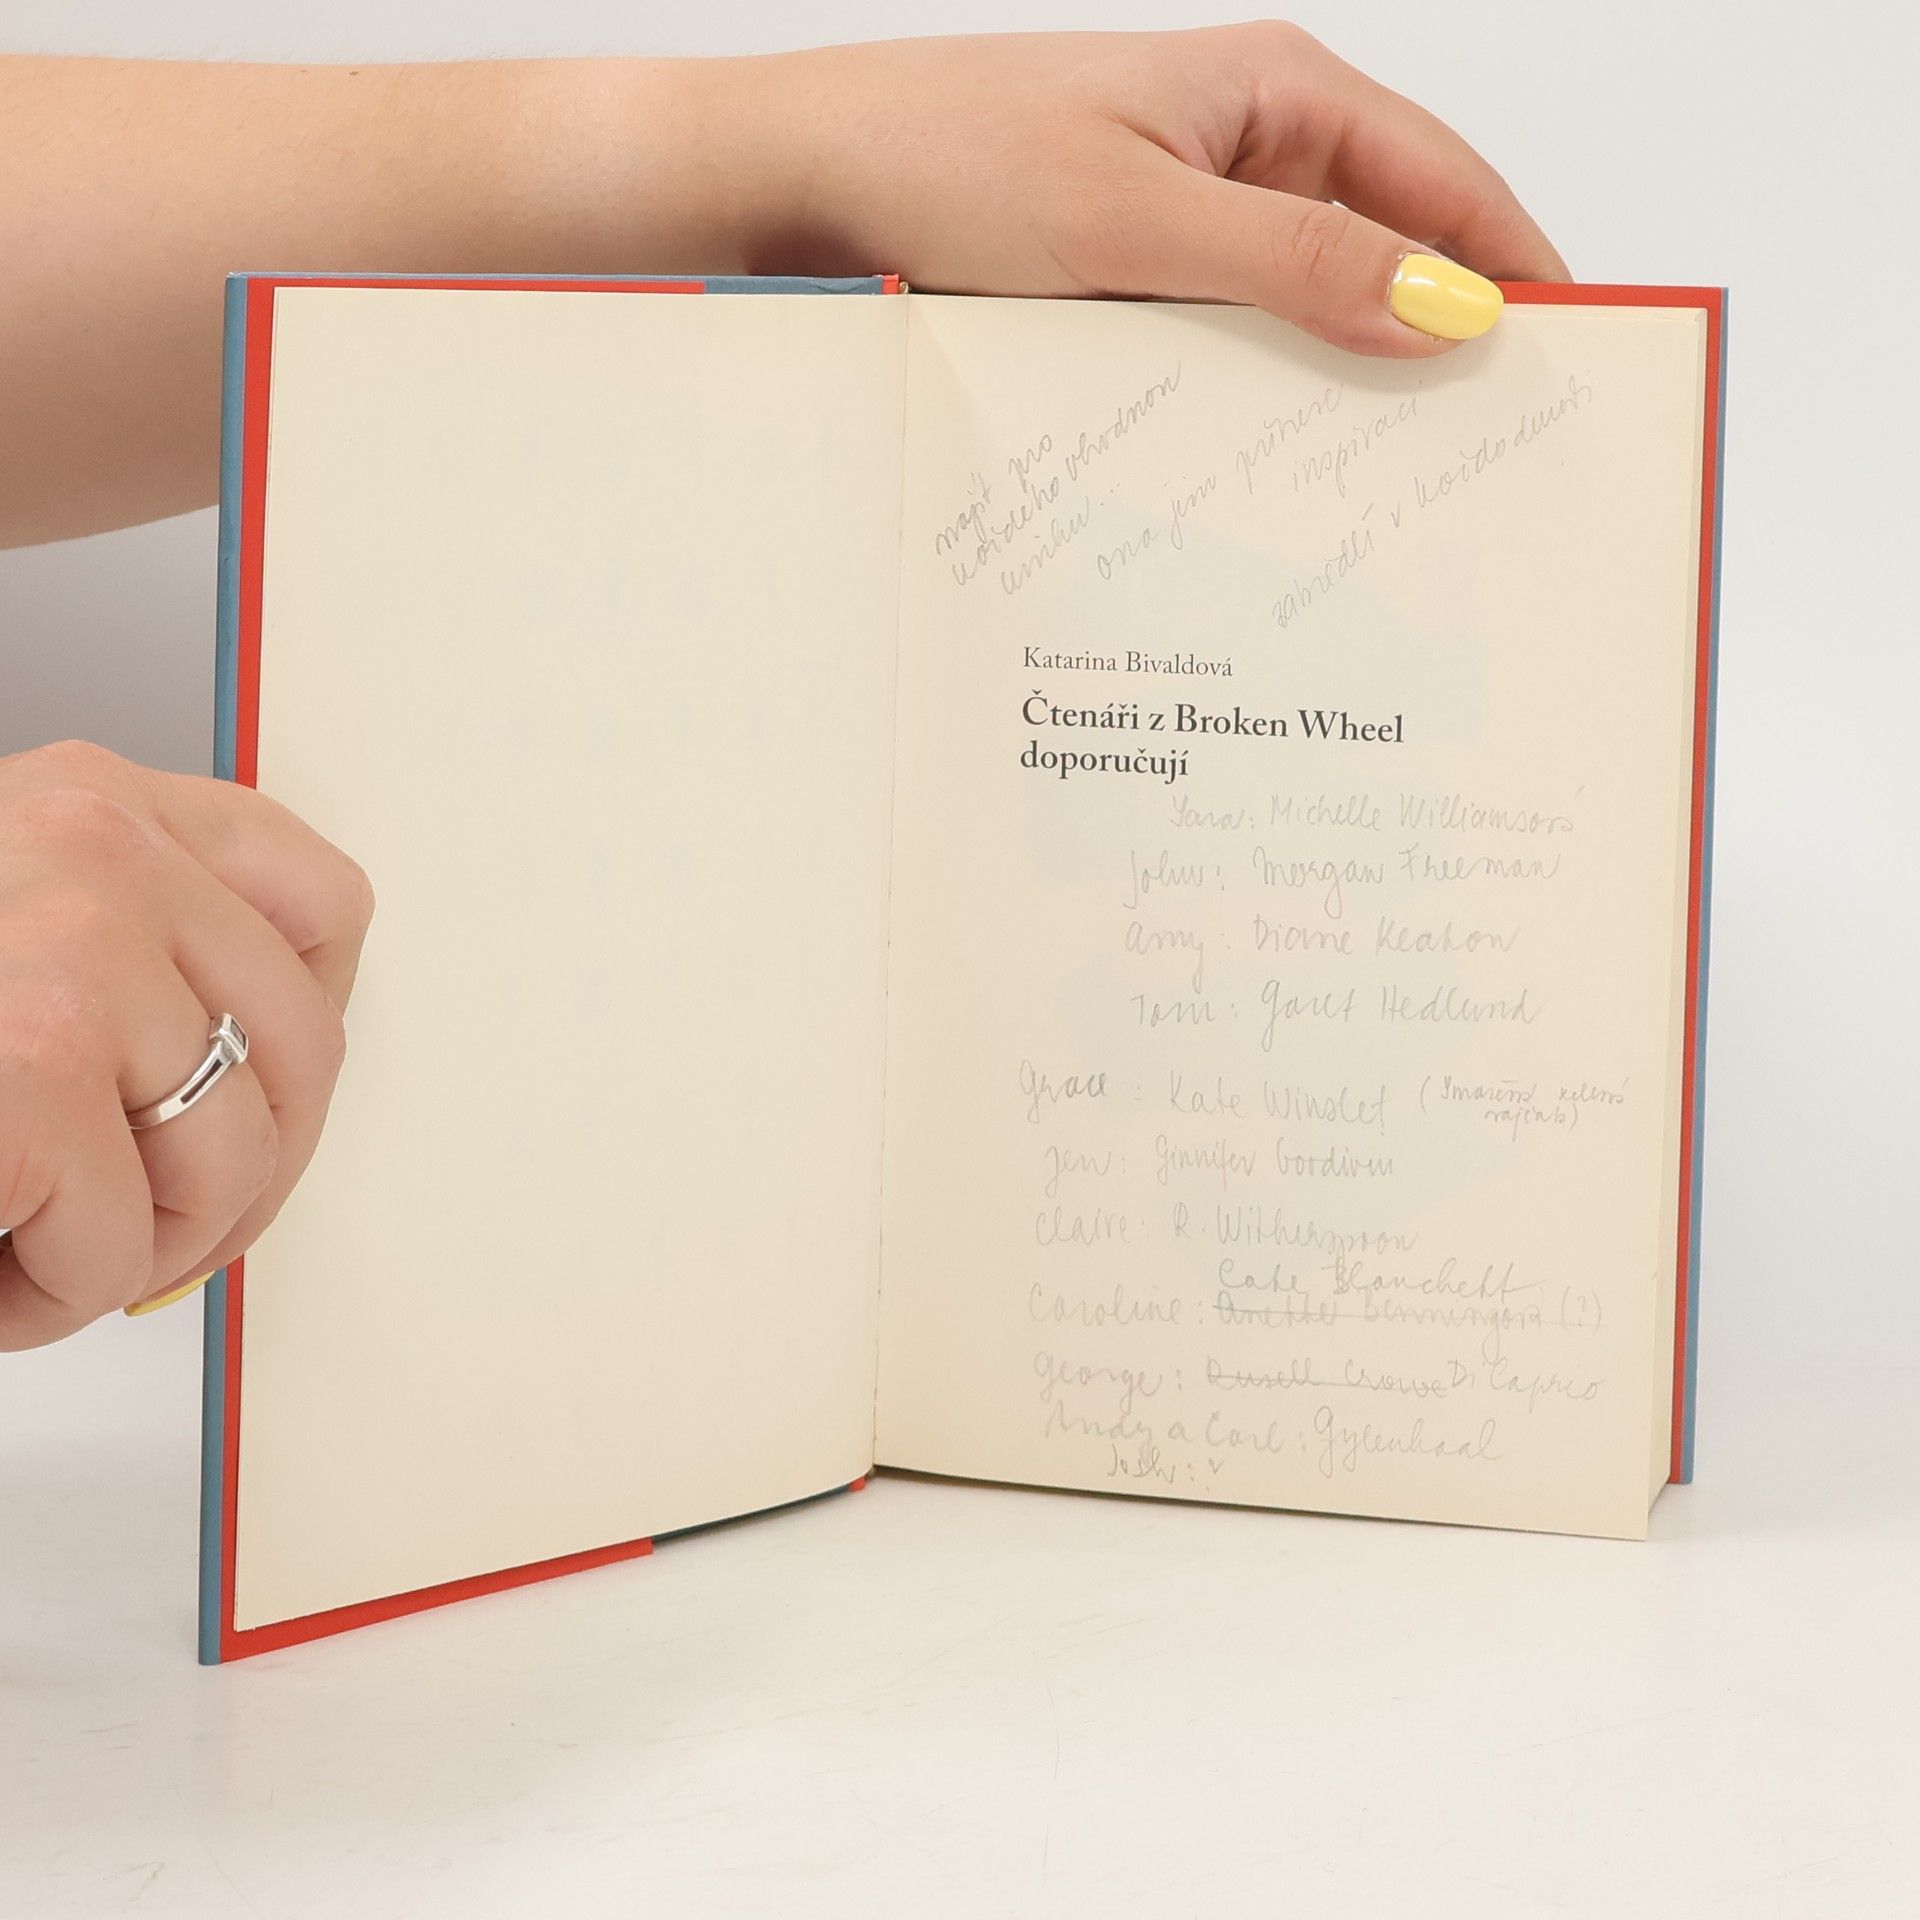 najít pro
každého vhodnou
knihu...
ona jim přinese
inspiraci
zabředlí v každodennosti
Katarina Bivaldová
Čtenáři z Broken Wheel
doporučují
Sara: Michelle Williamsová
John: Morgan Freeman
Amy: Diane Keaton
Tom: Garet Hedlund
Grace: Kate Winslet (Smažená zelená
rajčata)
Jen: Ginnifer Goodwin
Claire: R. Witherspoon
Cate Blanchett
Caroline: Anette Benningová (?)
George: Rusell Crowe Di Caprio
Andy a Carl: Gylenhaal
Josh: ?